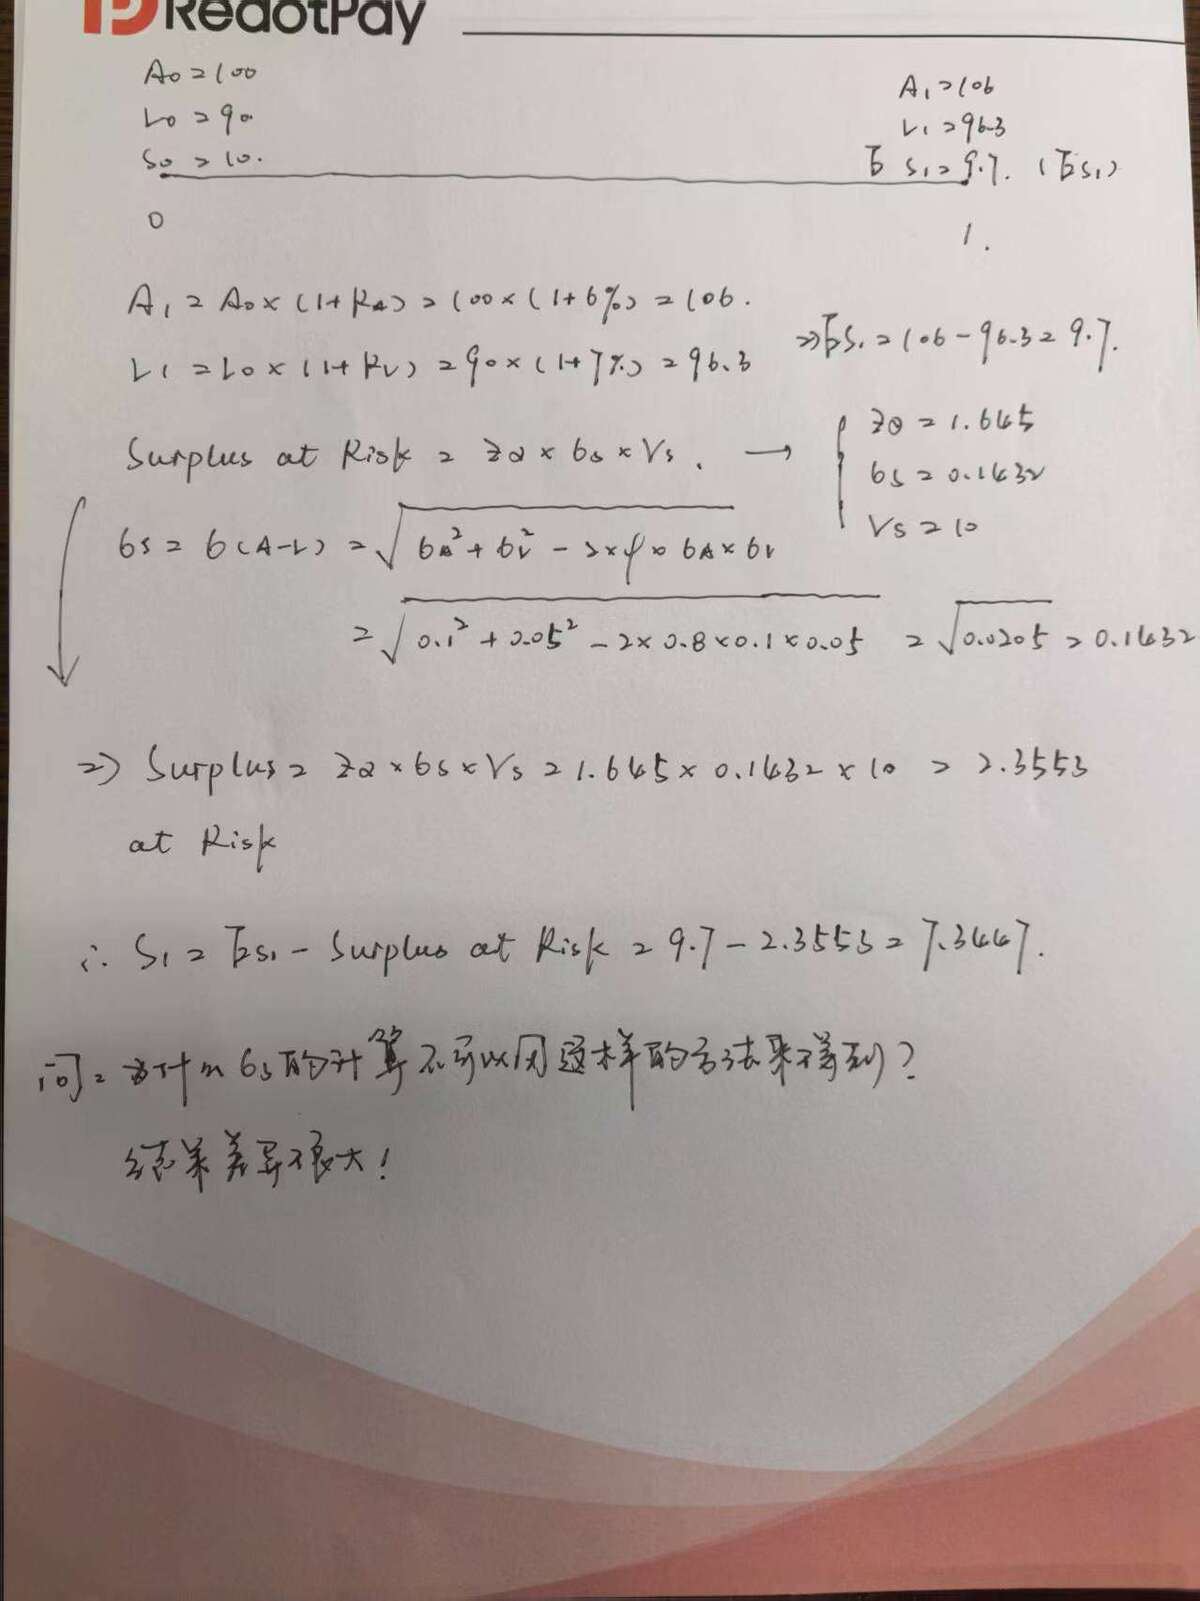 RedotPay
A0 = 100
A1 = 106
L0 = 90
L1 = 96.3
S0 = 10.
E S1 = 9.7. (ES1)
0
1.
A1 = A0 × (1+RA) = 100 × (1+6%) = 106.
L1 = L0 × (1+RL) = 90 × (1+7%) = 96.3
⇒ ES1 = 106 - 96.3 = 9.7.
Surplus at Risk = Zα × σs × Vs. →
Zα = 1.645
σs = 0.1432
Vs = 10
σs = σ(A-L) = √(σA² + σL² - 2 × ρ × σA × σL)
= √(0.1² + 0.05² - 2 × 0.8 × 0.1 × 0.05) = √0.0205 = 0.1432
⇒ Surplus = Zα × σs × Vs = 1.645 × 0.1432 × 10 = 2.3553
at Risk
∴ S1 = ES1 - Surplus at Risk = 9.7 - 2.3553 = 7.3447.
问: 为什么 σs 的计算不可以用这样的方法来得到?
结果差异很大!